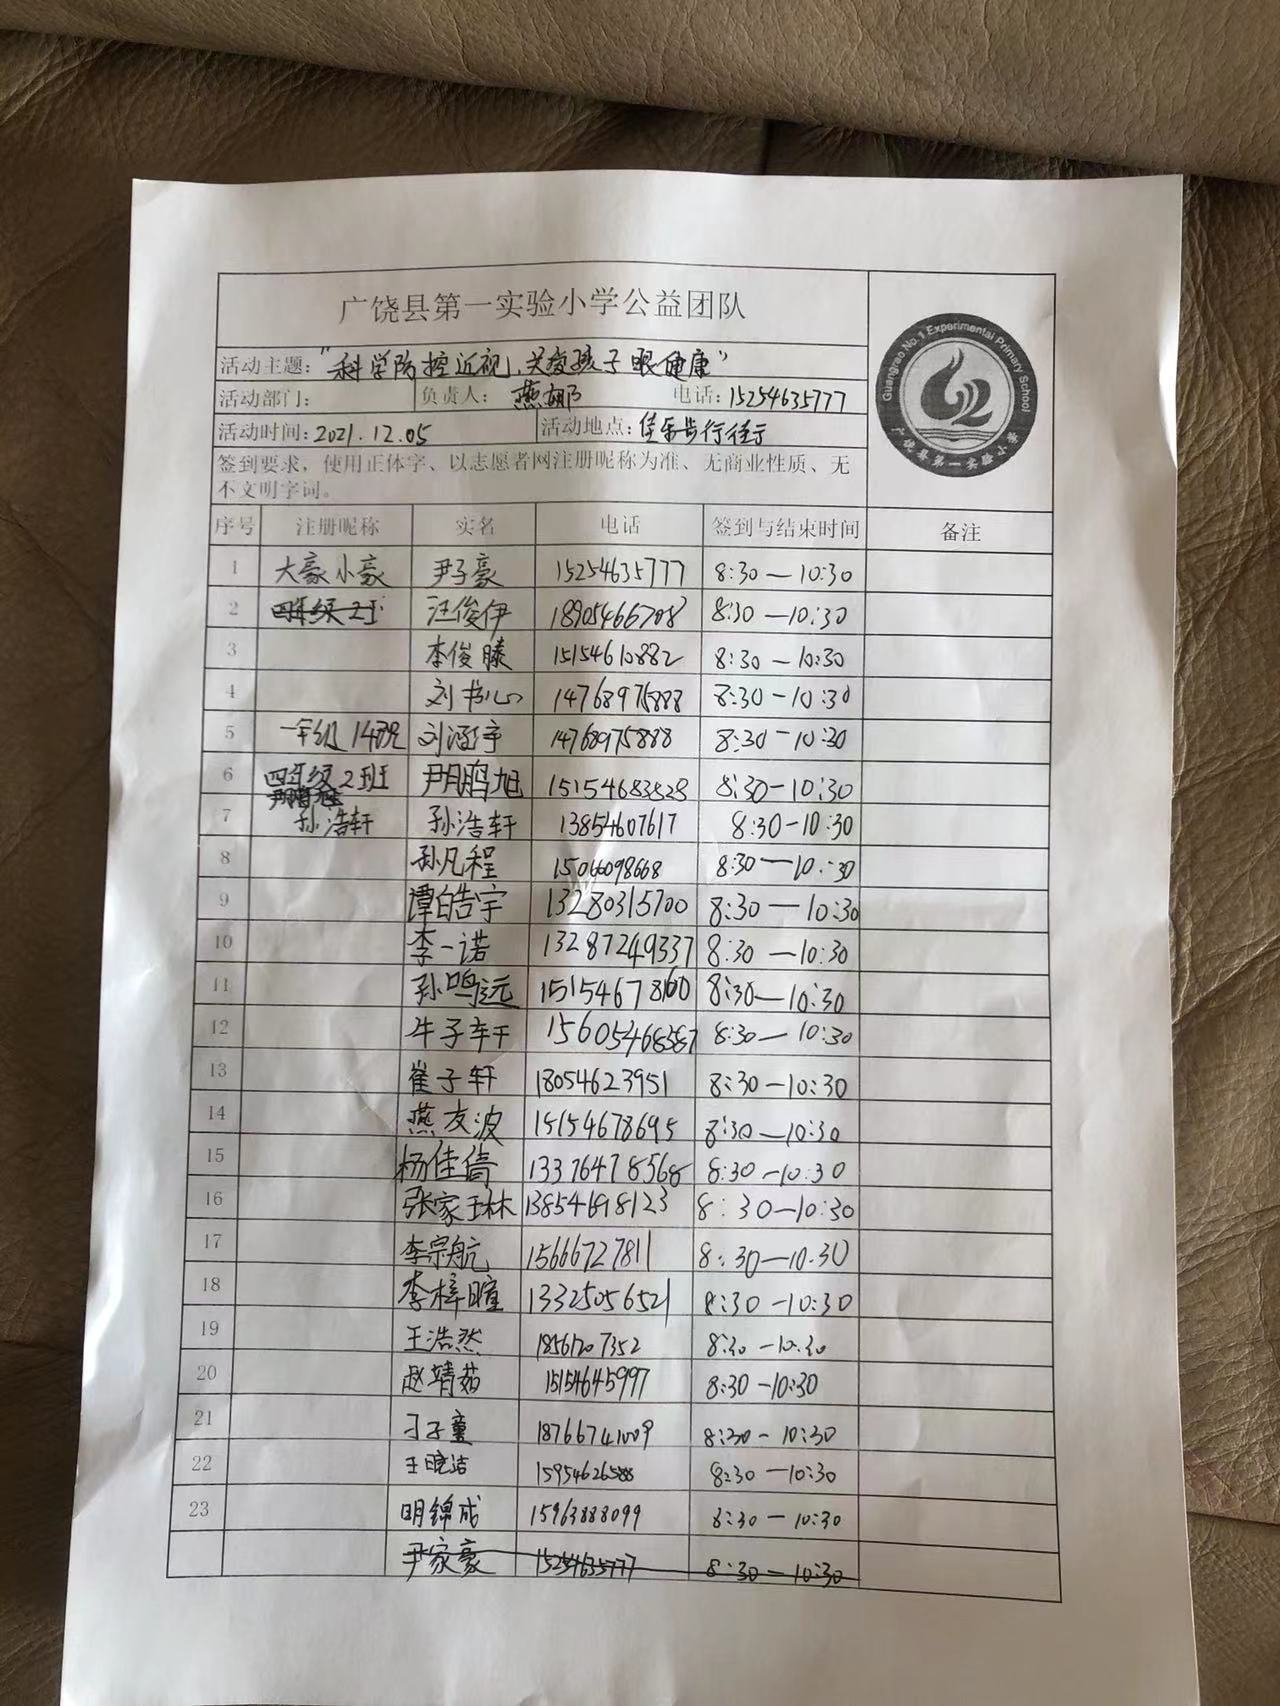 广饶县第一实验小学公益团队
Guangrao No.1 Experimental Primary School
广饶县第一实验小学
活动主题："科学防控近视、关爱孩子眼健康"
活动部门： 负责人：燕娜 电话：15254635777
活动时间：2021.12.05 活动地点：佳乐步行街
签到要求，使用正体字、以志愿者网注册昵称为准、无商业性质、无
不文明字词。
序号 注册昵称 实名 电话 签到与结束时间 备注
1 大豪小豪 尹子豪 15254635777 8:30—10:30
2 四年级2班 汪俊伊 18905466708 8:30—10:30
3 李俊滕 15154610882 8:30—10:30
4 刘书心 14768975888 8:30—10:30
5 一年级14班 刘涵宇 14768975888 8:30—10:30
6 四年级2班 尹鹏旭 15154683528 8:30—10:30
7 孙浩轩 孙浩轩 13854607617 8:30—10:30
8 孙凡程 15066098668 8:30—10:30
9 谭皓宇 13280315700 8:30—10:30
10 李一诺 13287249337 8:30—10:30
11 孙鸣远 15154678160 8:30—10:30
12 牛子轩 15605468587 8:30—10:30
13 崔子轩 18054623951 8:30—10:30
14 燕友波 15154678695 8:30—10:30
15 杨佳倩 13376478568 8:30—10:30
16 张家琳 13854698123 8:30—10:30
17 李宗航 15666727811 8:30—10:30
18 李梓瞳 13325056521 8:30—10:30
19 王浩然 18561207352 8:30—10:30
20 赵靖茹 15154645997 8:30—10:30
21 刁子童 18766741009 8:30—10:30
22 王晓洁 15954626588 8:30—10:30
23 明锦成 15963888099 8:30—10:30
尹家豪 15254635777 8:30—10:30